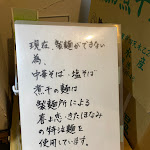 現在、製麺ができない
為、
中華そば・塩そば
煮干の麺は
製麺所による
春よ恋・きたほなみ
の特注麺を
使用しています。